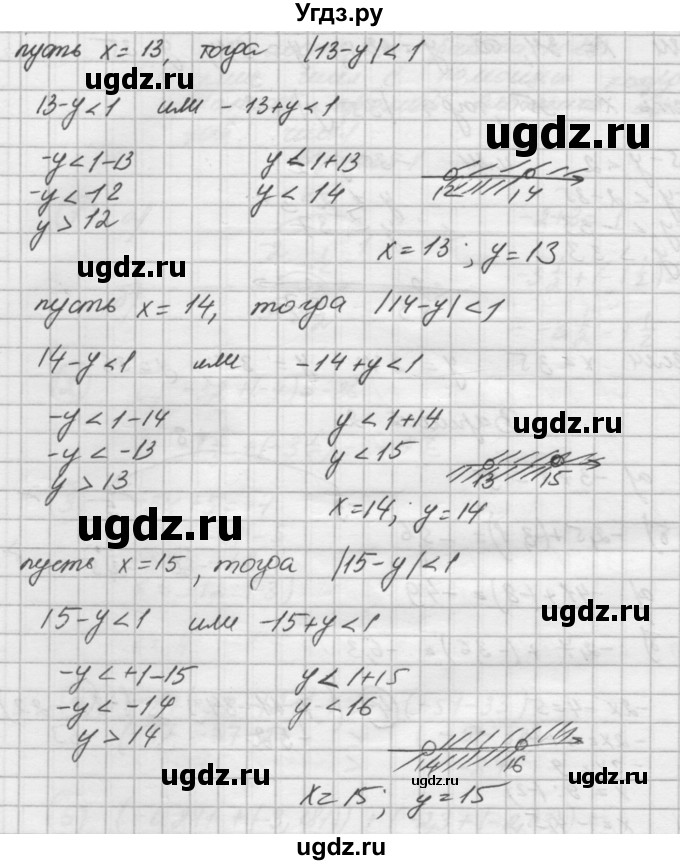 Угдз.ру
пусть x = 13, тогда |13-y| < 1
ugdz.ru
13-y<1 или -13+y<1
ugdz.ru
-y<1-13 y<1+13
-y<12 y<14
12 14
y>12
x=13; y=13
ugdz.ru
пусть x = 14, тогда |14-y|<1
14-y<1 или -14+y<1
-y<1-14 y<1+14
ugdz.ru
-y<-13 y<15
13 15
y>13
x=14; y=14
ugdz.ru
пусть x=15, тогда |15-y|<1
ugdz.ru
15-y<1 или -15+y<1
-y<+1-15 y<1+15
-y<-14 y<16
y>14
14 16
ugdz.ru
ugdz.ru
x=15; y=15
Угдз.ру